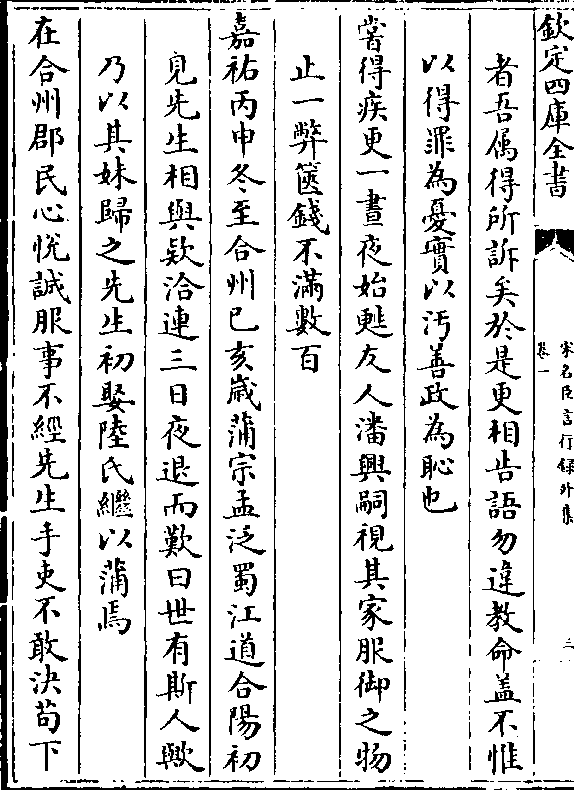 欽定四庫全書
宋名臣言行録外集
卷一
三
者吾属得所訴矣於是更相告語勿違教命盖不惟
以得罪為憂實以汚善政為恥也
嘗得疾更一晝夜始甦友人潘興嗣視其家服御之物
止一弊篋錢不滿數百
嘉祐丙申冬至合州己亥嵗蒲宗孟泛蜀江道合陽初
見先生相與欵洽連三日夜退而歎曰世有斯人歟
乃以其妹歸之先生初娶陸氏繼以蒲焉
在合州郡民心悅誠服事不經先生手吏不敢決苟下